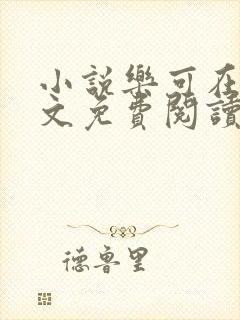 小說樂可在
文免費閱讀
德魯里